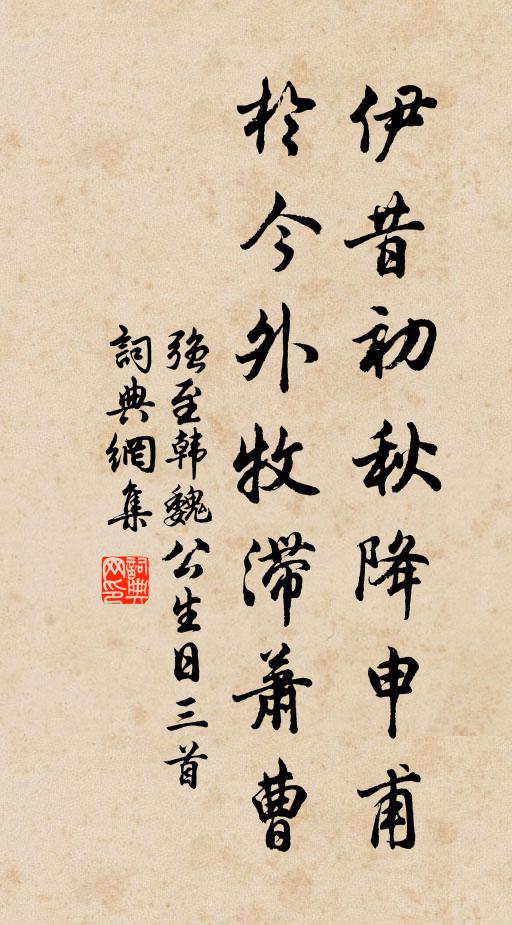 伊昔初秋降申甫
於今外牧滞蕭曹
強至韩魏公生日三首
詞典網集
詞典网印